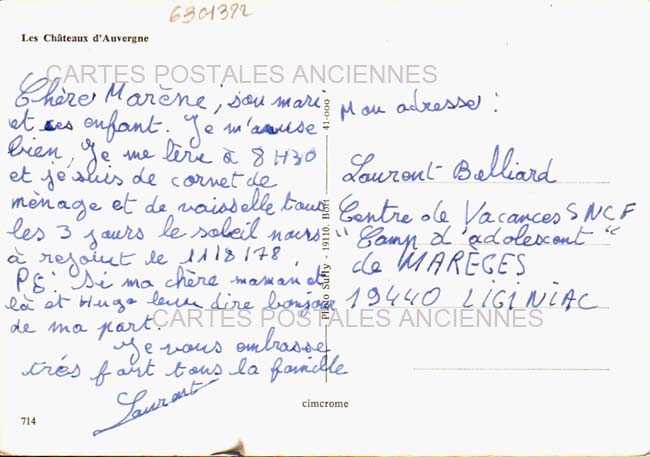 6301372
Les Châteaux d'Auvergne
CARTES POSTALES ANCIENNES
Chère Marène, son mari
et ces enfant. Je m'amuse
bien, Je me lève à 8H30
et je suis de cornet de
ménage et de vaisselle tous
les 3 jours le soleil nous
à rejoint le 11 8 178.
PS: Si ma chère maman et
là et Hugo leur dire bonjour
de ma part.
Je vous embrasse
très fort tous la famille
Laurent
714
41-000
Photo Suffy - 19110. Bort
cimcrome
Mon adresse :
Laurent Balliard
Centre de Vacances SNCF
"Camp d'adolescent"
de MARÈGES
19440 LIGINIAC
CARTES POSTALES ANCIENNES